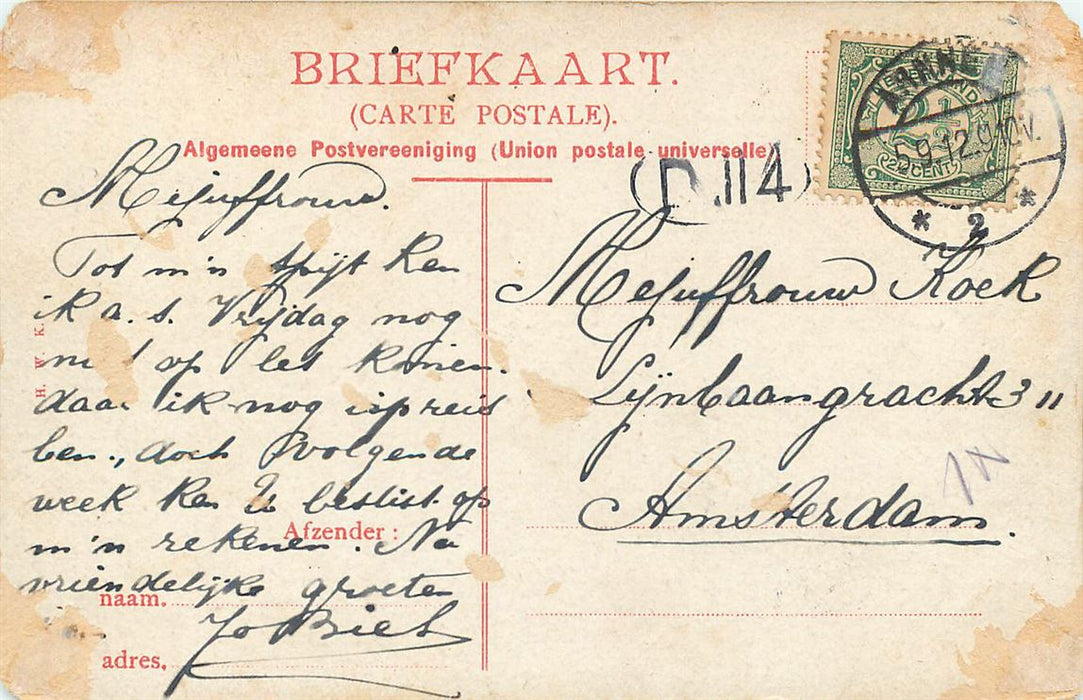 BRIEFKAART.
(CARTE POSTALE).
Algemeene Postvereeniging (Union postale universelle)
NEDERLAND
2½
2½ CENT
5.9.12.9-10V.
* 2 *
D.114
H. W. K.
Mejuffrouw.
Tot m'n spijt kan
ik a. s. Vrijdag nog
niet op les komen.
daar ik nog op reis
ben., doch volgende
week kan U beslist op
m'n rekenen. Na
vriendelijke groeten
Jo
Afzender:
naam.
adres.
Mejuffrouw Koek
Lijnbaangracht 3 "
Amsterdam.